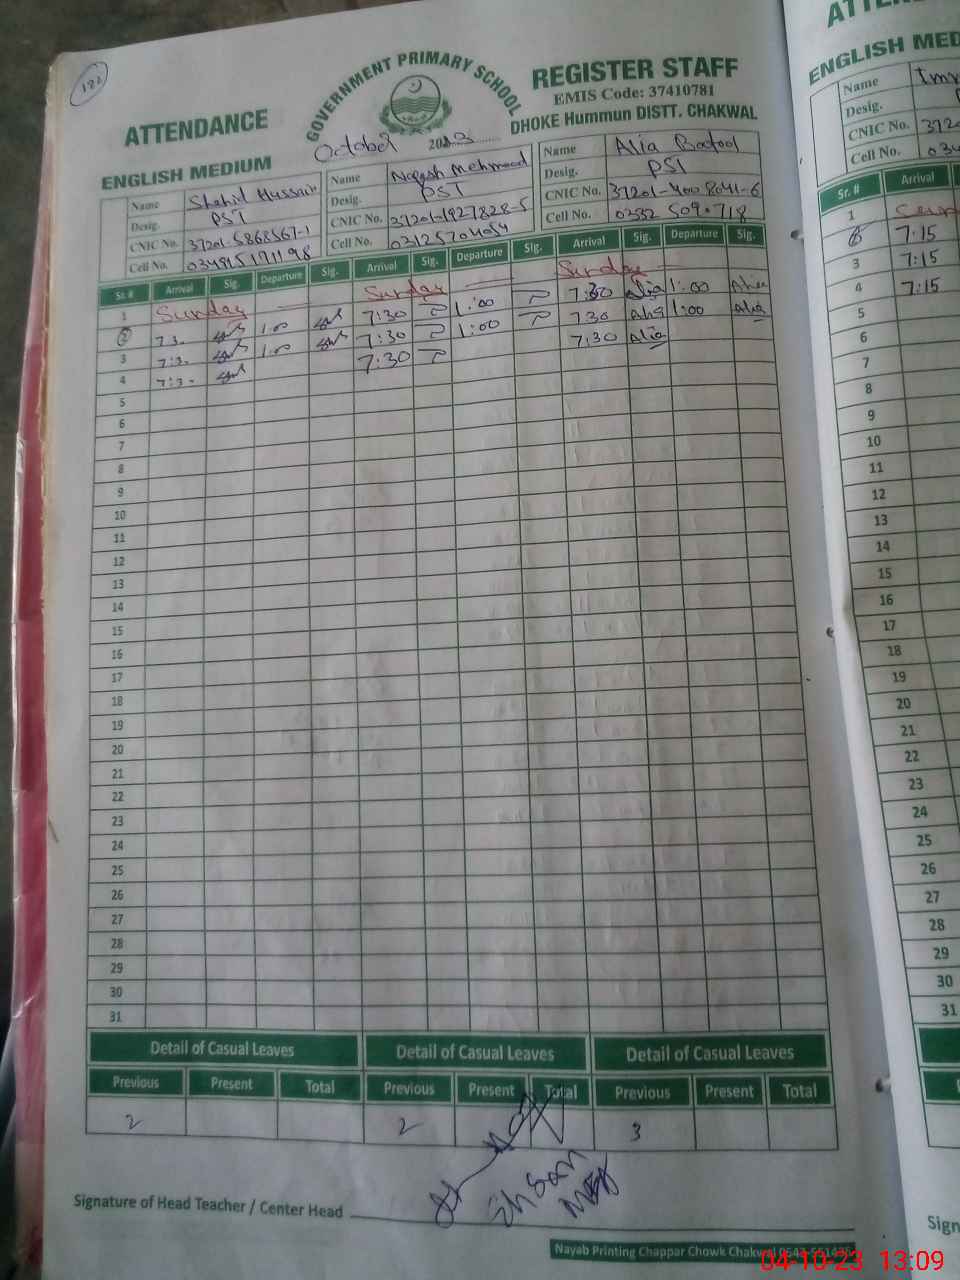 182
GOVERNMENT PRIMARY SCHOOL
ATTENDANCE
REGISTER STAFF
EMIS Code: 37410781
DHOKE Hummun DISTT. CHAKWAL
ENGLISH MEDIUM
October 2023
Name Shahid Hussain
Desig. PST
CNIC No. 37201-5868567-1
Cell No.
Name Mehmood
Desig. PST
CNIC No. 37201-1927828-5
Cell No. 03125704054
Name Alia Batool
Desig. PST
CNIC No. 37201-4008041-6
Cell No. 0332 5090718
Sr. # Arrival Sig. Departure Sig. Arrival Sig. Departure Sig. Arrival Sig. Departure Sig.
1 Sunday Sunday Sunday
2 7:3. 1:00 7:30 1:00 7:30 Alia 1:00 Alia
3 7:3. 1:00 7:30 1:00 7:30 Alia 1:00 Alia
4 7:3. 7:30 7:30 Alia
5
6
7
8
9
10
11
12
13
14
15
16
17
18
19
20
21
22
23
24
25
26
27
28
29
30
31
Detail of Casual Leaves Detail of Casual Leaves Detail of Casual Leaves
Previous Present Total Previous Present Total Previous Present Total
2 2 3
Ehsan
Signature of Head Teacher / Center Head
Nayab Printing Chappar Chowk Chakwal
ENGLISH MED
Name
Desig.
CNIC No. 3720
Cell No. 034
Sr. # Arrival
1
7:15
3 7:15
4 7:15
5
6
7
8
9
10
11
12
13
14
15
16
17
18
19
20
21
22
23
24
25
26
27
28
29
30
31
Sign
04-10-23 13:09